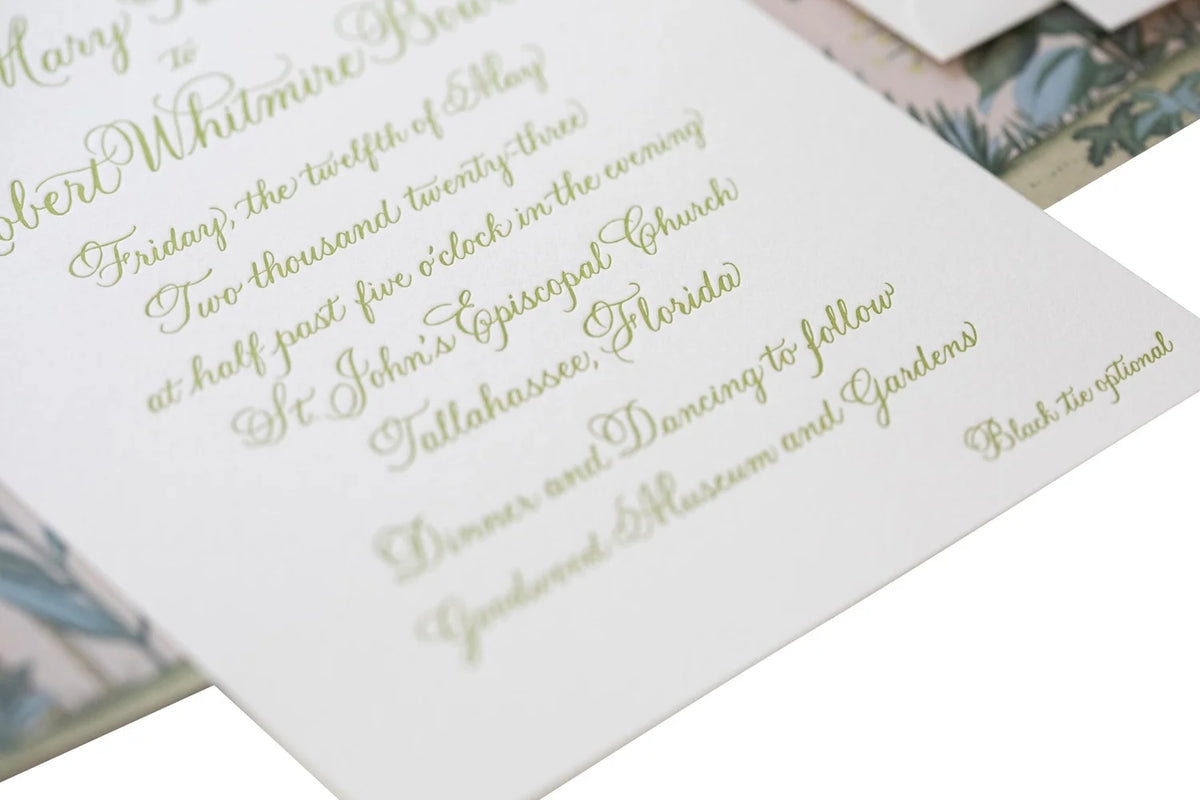 Mary
To
Robert Whitmire
Friday, the twelfth of May
Two thousand twenty-three
at half past five o'clock in the evening
St. John's Episcopal Church
Tallahassee, Florida
Dinner and Dancing to follow
Goodwood Museum and Gardens
Black tie optional